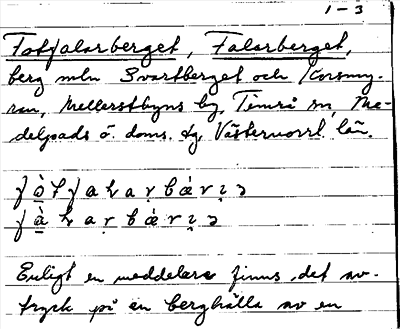 1-3
Fotfalarberget, Falarberget,
berg mln Svartberget och Korsmy-
ran, Mellerstbyns by, Timrå sn, Me-
delpads ö. doms. dg Västernorrl. län.
Enligt en meddelare finns det av-
tryck på en berghälla av en